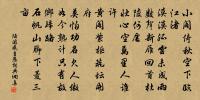 小閣倚秋空下臨
江渚
漠漠孤雲未成雨
數聲新雁回首杜
陵何處壯心
空萬里人誰
許
黃閣紫樞築壇開
府
莫怕功名欠人做
如今熟計只有故
鄉歸路
石帆山腳下菱三
畝
陸游感皇恩